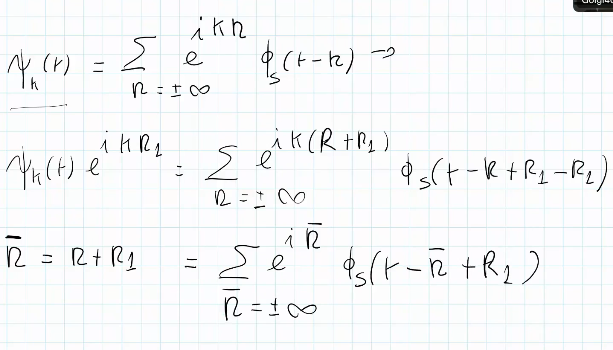 ψ_k(r) = Σ_{R=±∞} e^{ikR} ϕ_s(r-R) →
ψ_k(r) e^{ikR_1} = Σ_{R=±∞} e^{ik(R+R_1)} ϕ_s(r-R+R_1-R_1)
R̄ = R+R_1 = Σ_{R̄=±∞} e^{iR̄} ϕ_s(r-R̄+R_1)